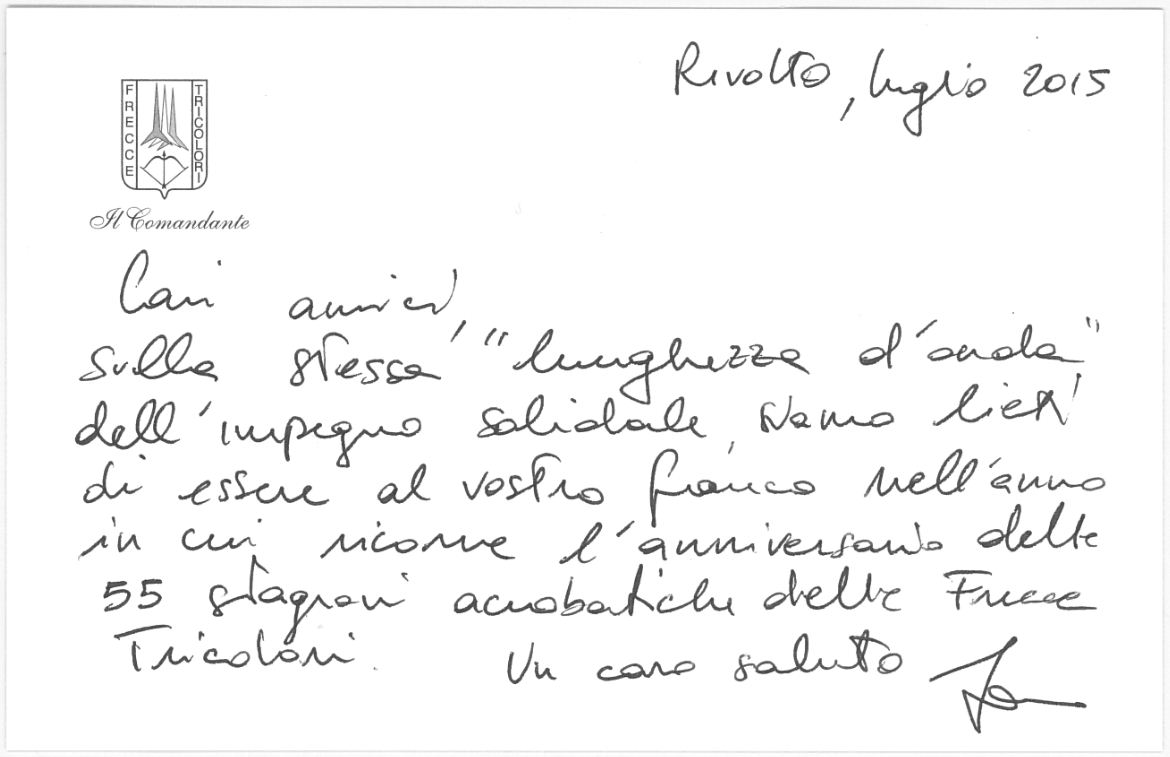 Rivolto, luglio 2015
FRECCE TRICOLORI
Il Comandante
Cari amici,
sulla stessa "lunghezza d'onda"
dell'impegno solidale, siamo lieti
di essere al vostro fianco nell'anno
in cui ricorre l'anniversario delle
55 stagioni acrobatiche delle Frecce
Tricolori. Un caro saluto